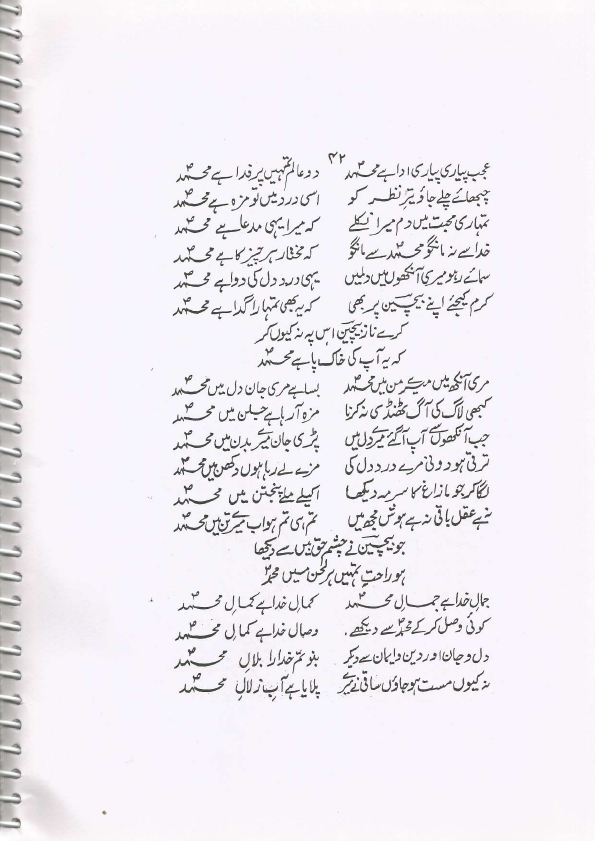 ۴۲
عجب پیاری پیاری ادا ہے محمدؐ دو عالم تمہیں پر فدا ہے محمدؐ
چبھائے چلے جاؤ تیرِ نظر کو اسی درد میں تو مزہ ہے محمدؐ
تمہاری محبت میں دم میرا نکلے کہ میرا یہی مدعا ہے محمدؐ
خدا سے نہ مانگو محمدؐ سے مانگو کہ مختار ہر چیز کا ہے محمدؐ
سمائے رہو میری آنکھوں میں دلمیں یہی درد دل کی دوا ہے محمدؐ
کرم کیجئے اپنے بیچین پر بھی کہ یہ بھی تمہارا گدا ہے محمدؐ
کرے ناز بیچین اس پہ نہ کیوں کر
کہ یہ آپ کی خاک پا ہے محمدؐ
مری آنکھ میں میرے من میں محمدؐ بسا ہے مری جان دل میں محمدؐ
کبھی لاگ کی آگ ٹھنڈی نہ کرنا مزہ آ رہا ہے جلن میں محمدؐ
جب آنکھوں سے آپ آگئے میرے دل میں پڑی جان میرے بدن میں محمدؐ
ترقی ہو دونی مرے درد دل کی مزے لے رہا ہوں دکھن میں محمدؐ
لگا کر جو مازاغ کا سرمہ دیکھا اکیلے ملے پنجتن میں محمدؐ
نہ ہے عقل باقی نہ ہے ہوش مجھ میں تم ہی تم ہو اب میرے تن میں محمدؐ
جو بیچین نے چشم حق بیں سے دیکھا
ہو راحت تمہیں ہر لحن میں محمدؐ
جمالِ خدا ہے جمالِ محمدؐ کمالِ خدا ہے کمالِ محمدؐ
کوئی وصل کر کے محمدؐ سے دیکھے۔ وصال خدا ہے کمالِ محمدؐ
دل و جان اور دین و ایمان سے دیکر بنو تم خدارا بلالِ محمدؐ
نہ کیوں مست ہو جاؤں ساقی نے میرے پلایا ہے آبِ زلالِ محمدؐ